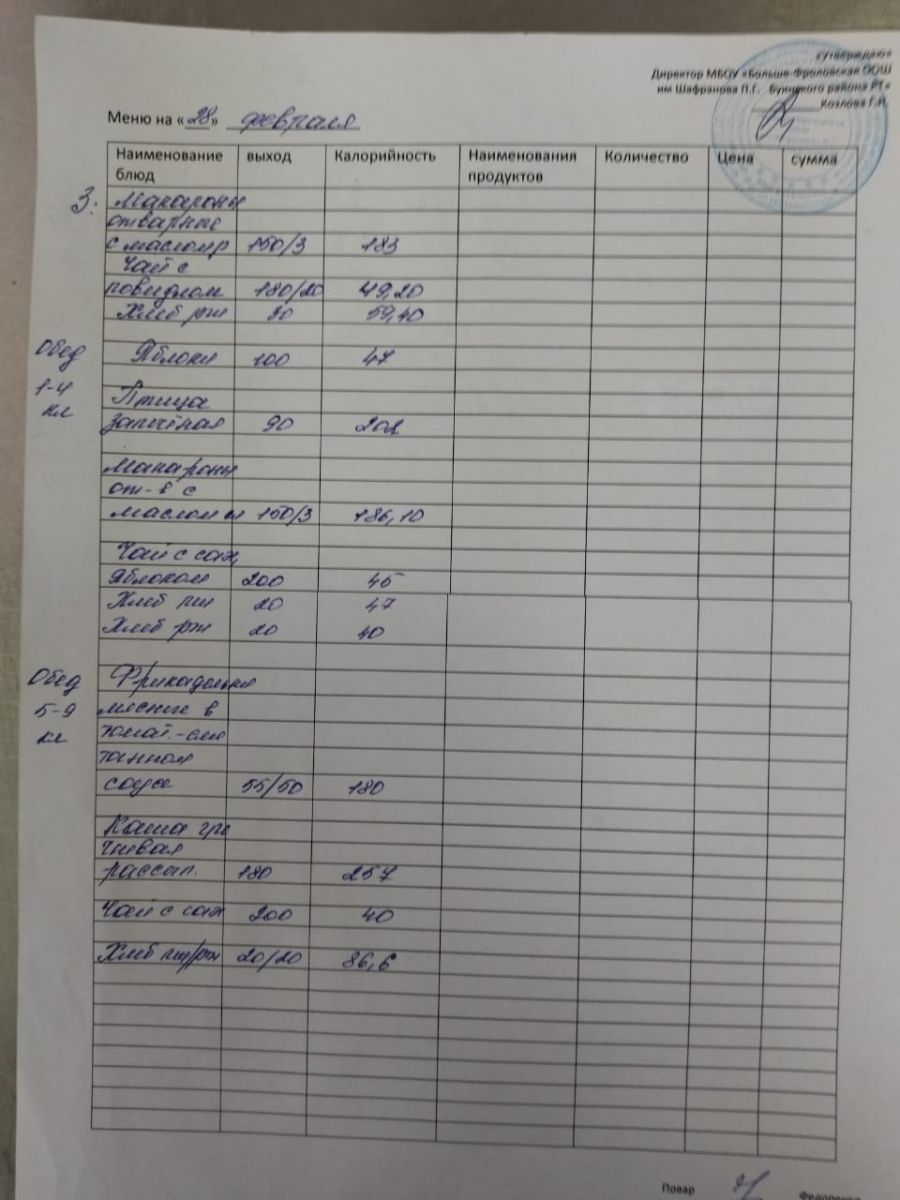 «Утверждаю»
Директор МБОУ «Больше-Фроловская ООШ
им Шафранова П.Г. Буинского района РТ»
Козлова Г.Н.
Меню на «28» февраля
Наименование блюд выход Калорийность Наименования продуктов Количество Цена сумма
З. Макароны
отварные
с маслом 150/3 183
Чай с
повидлом 180/20 49,20
Хлеб рж 30 59,40
Обед Яблоки 100 47
1-4
кл Птица
запечная 90 202
Макароны
от-в с
маслом 150/3 186,10
Чай с сах,
яблоком 200 45
Хлеб пш 20 47
Хлеб рж 20 40
Обед Фрикадельки
5-9 мясные в
кл томат.-сме
танном
соусе 55/50 180
Каша гре
чневая
рассып. 180 257
Чай с сах 200 40
Хлеб пш/рж 20/20 86,6
Повар Федоренко